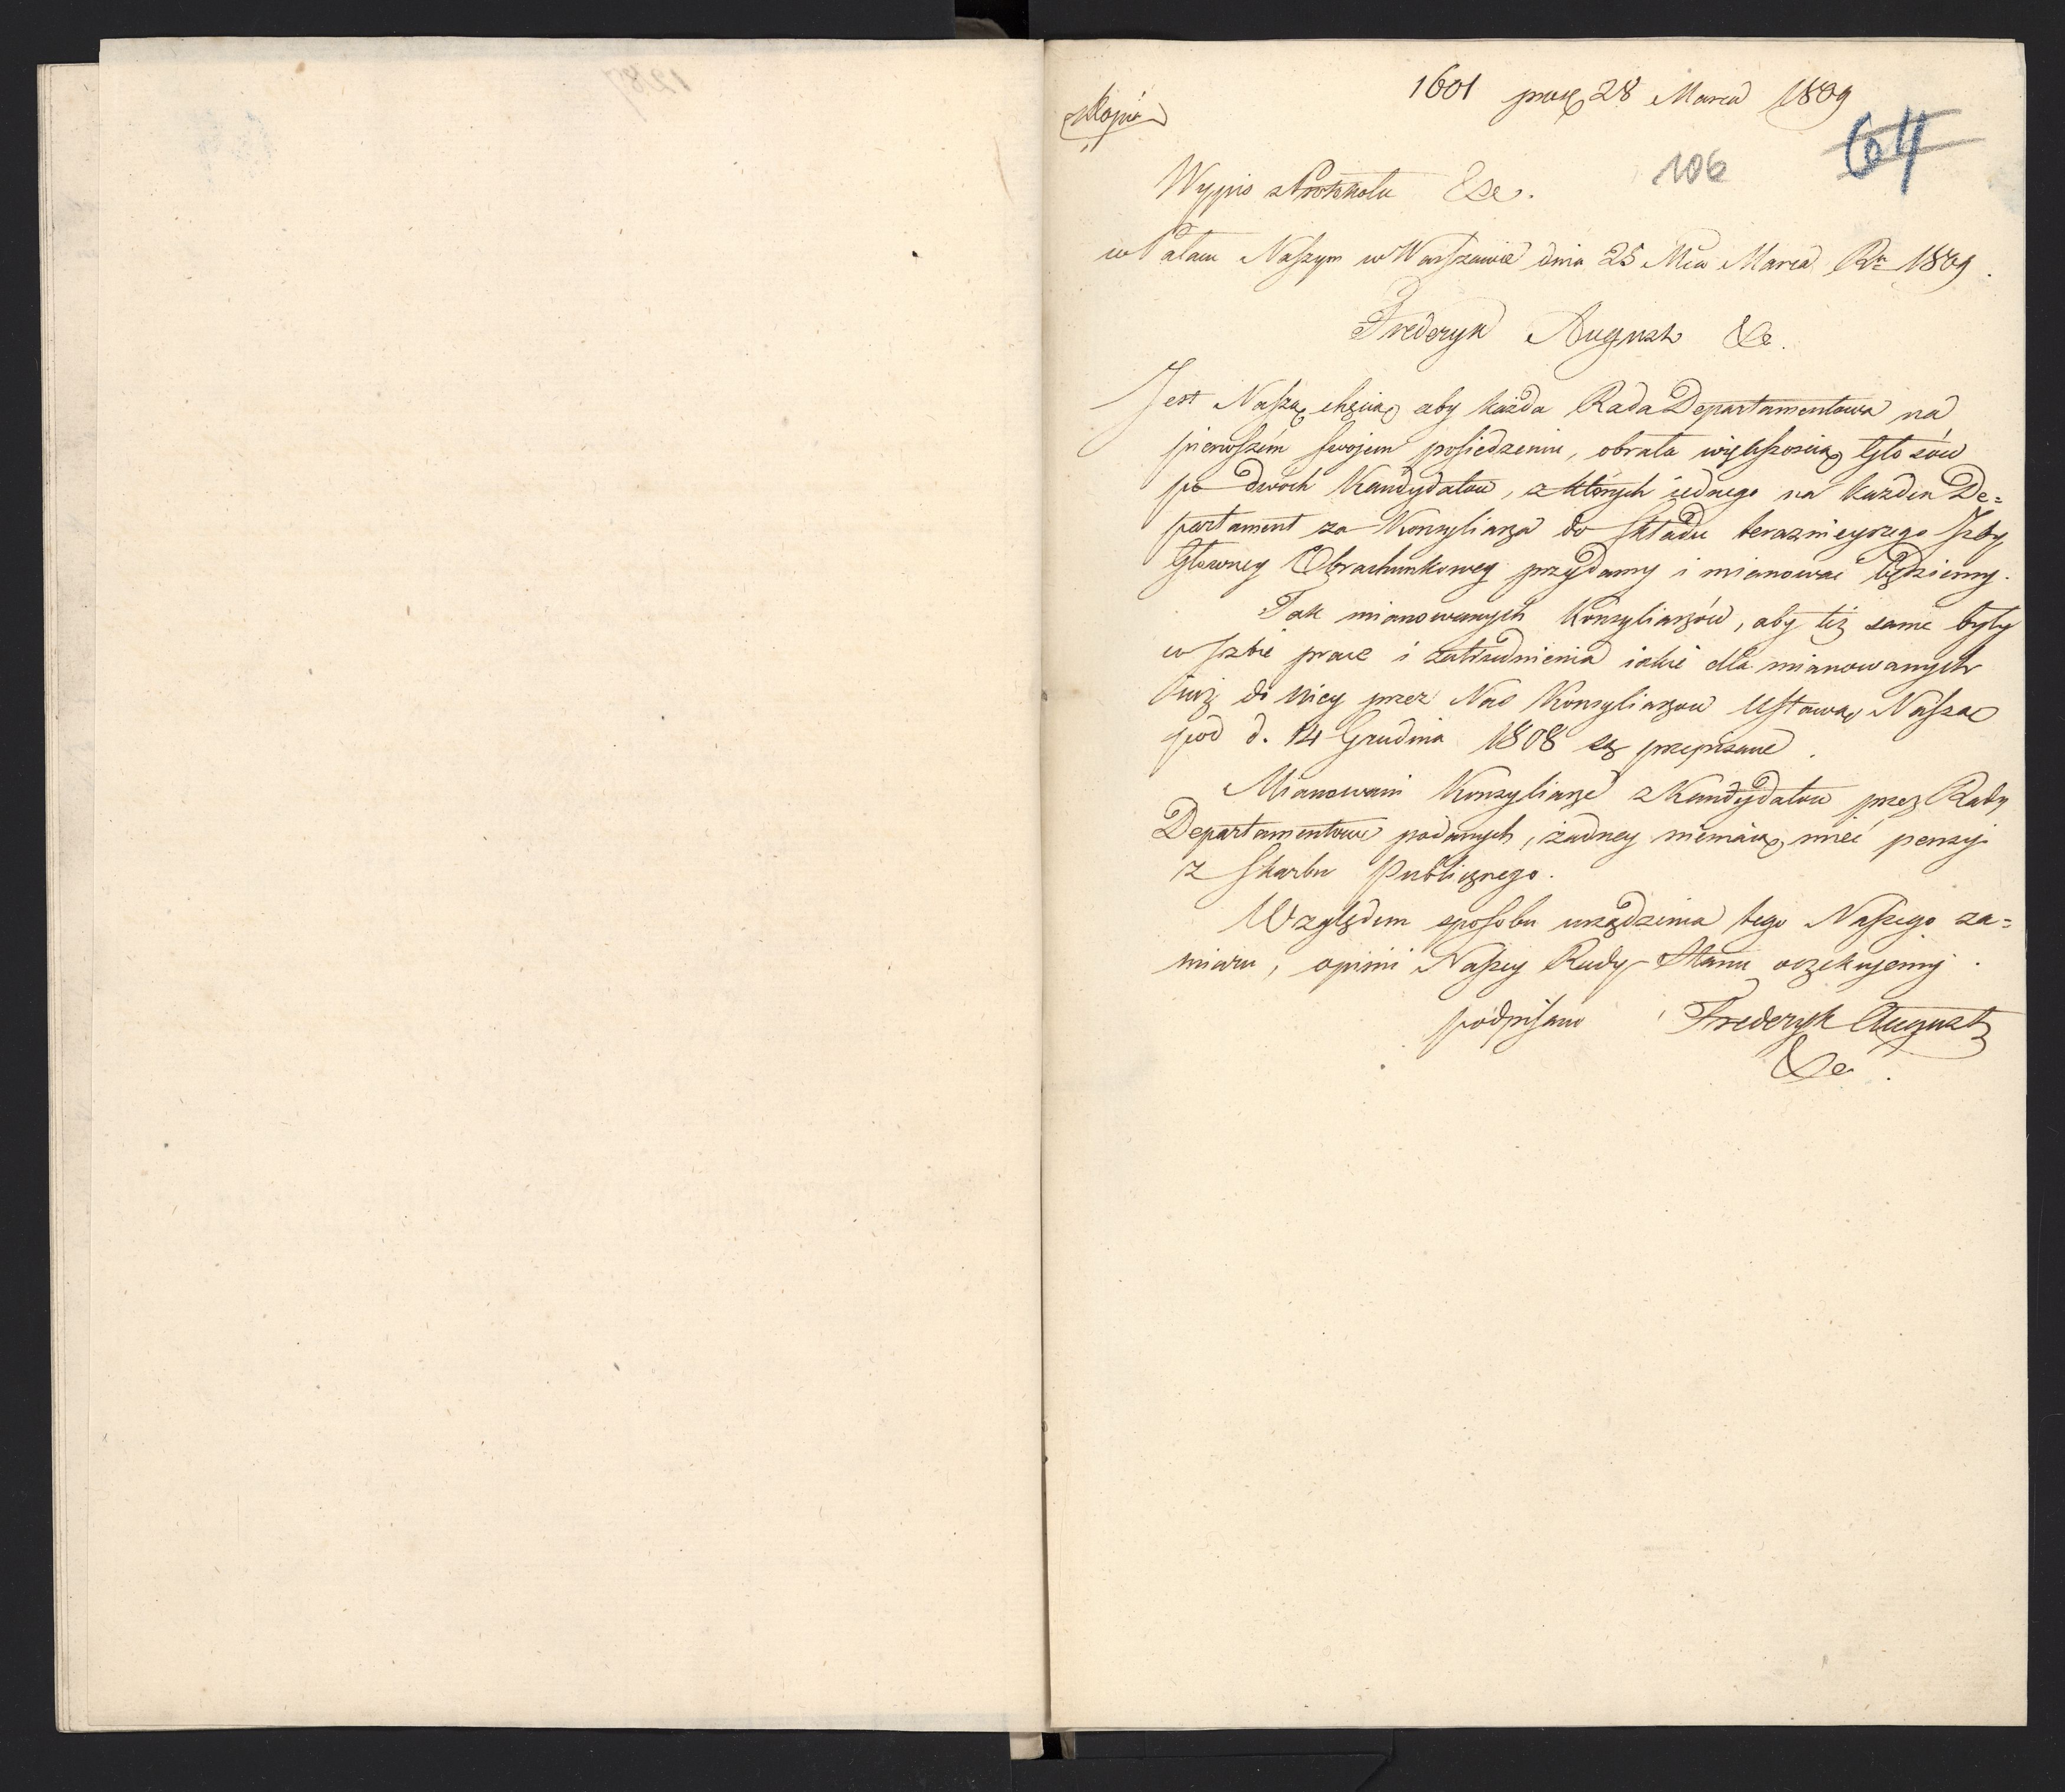 1601 pras 28 Marca 1809
Kopia
64
106
Wypis z Protokołu &c.
w Pałacu Naszym w Warszawie dnia 25 Mca Marca Ru 1809.
Frederyk August &c.
Jest Naszą chęcią aby każda Rada Departamentowa na
pierwszém swojem posiedzeniu, obrała większością głosów
po dwóch Kandydatów, z których iednego na każden De=
partament za Konsyliarza do składu terazniejszego Izby
Głowney Obrachunkowey przydamy i mianować będziemy.
Tak mianowanych Konsyliarzów, aby też same były
w Izbie prace i zatrudnienia iakie dla mianowanych
iuż do Niey przez Nas Konsyliarzow Ustawą Naszą
pod d. 14 Grudnia 1808 są przepisane.
Mianowani Konsyliarze z Kandydatow przez Rady
Departamentowe podanych, żadney niemaią mieć pensyi
z Skarbu Publicznego.
Względem sposobu urządzenia tego Naszego za=
miaru, opinii Naszey Rady Stanu oczekujemy.
podpisano Frederyk August
&c.